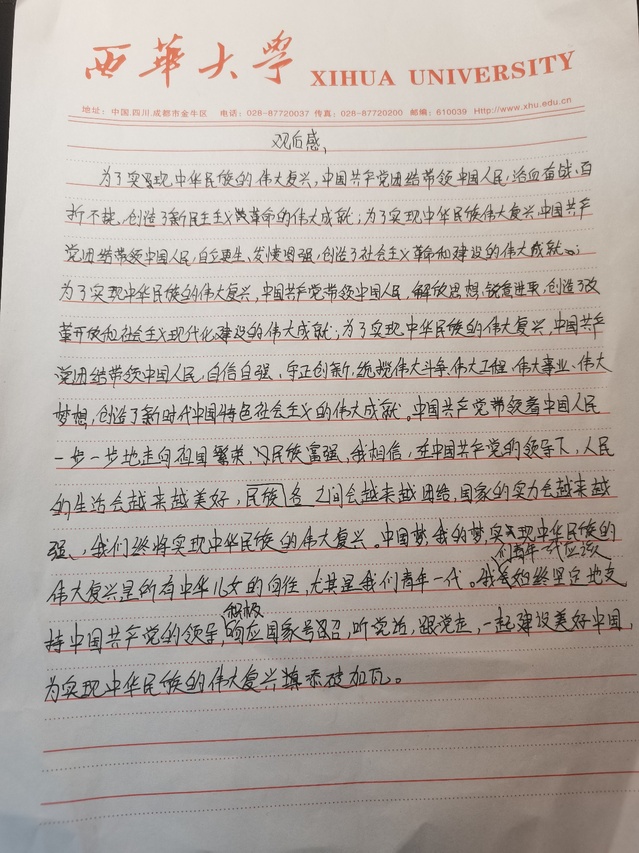 西華大學 XIHUA UNIVERSITY
地址：中国.四川.成都市金牛区 电话：028-87720037 传真：028-87720200 邮编：610039 Http://www.xhu.edu.cn
观后感
为了实现中华民族的伟大复兴，中国共产党团结带领中国人民，浴血奋战、百
折不挠，创造了新民主主义革命的伟大成就；为了实现中华民族伟大复兴，中国共产
党团结带领中国人民，自立更生、发愤图强，创造了社会主义革命和建设的伟大成就；
为了实现中华民族的伟大复兴，中国共产党带领中国人民，解放思想、锐意进取，创造了改
革开放和社会主义现代化建设的伟大成就；为了实现中华民族的伟大复兴，中国共产
党团结带领中国人民，自信自强、守正创新，统揽伟大斗争、伟大工程、伟大事业、伟大
梦想，创造了新时代中国特色社会主义的伟大成就。中国共产党带领着中国人民
一步一步地走向祖国繁荣，民族富强，我相信，在中国共产党的领导下，人民
的生活会越来越美好，民族各之间会越来越团结，国家的实力会越来越
强、我们终将实现中华民族的伟大复兴。中国梦，我的梦，实现中华民族的
伟大复兴是所有中华儿女的向往，尤其是我们青年一代。我们青年一代应该始终坚定地支
持中国共产党的领导，积极响应国家号召，听党话，跟党走，一起建设美好中国，
为实现中华民族的伟大复兴填添砖加瓦。